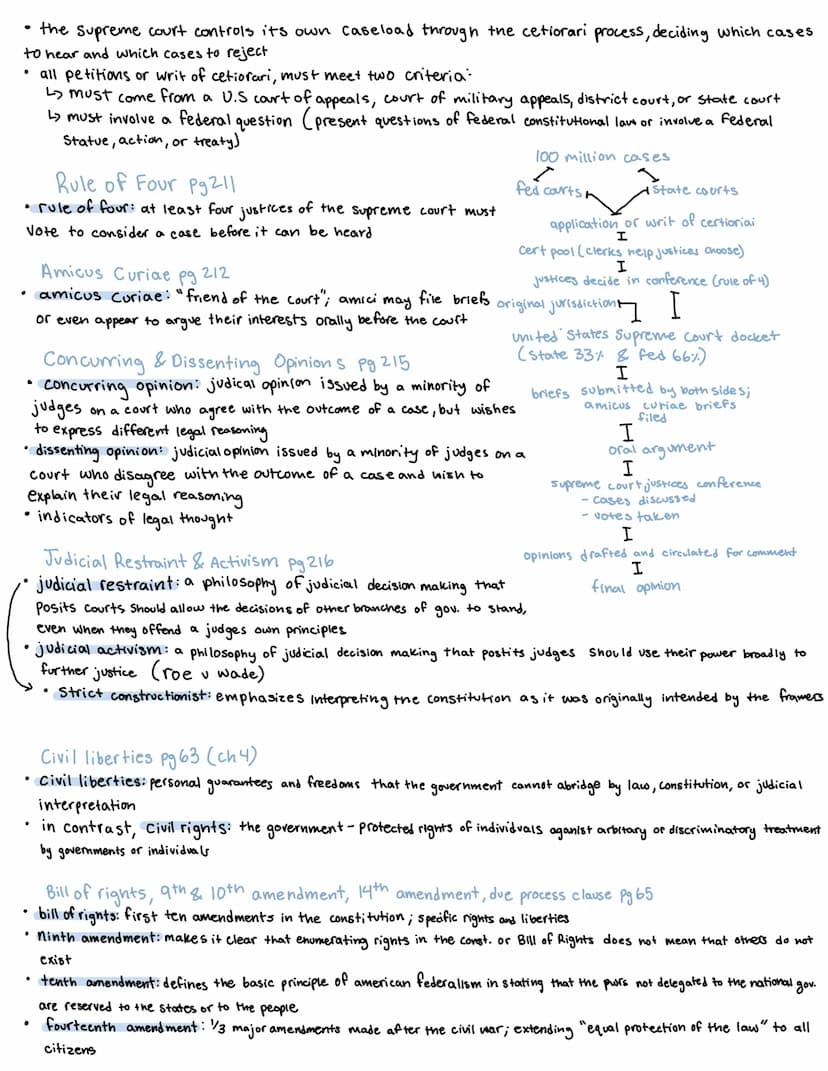 • the Supreme court controls its own caseload through the cetiorari process, deciding which cases
to hear and which cases to reject
• all petitions or writ of cetiorari, must meet two criteria:
↳ must come from a U.S court of appeals, court of military appeals, district court, or state court
↳ must involve a federal question (present questions of federal constitutional law or involve a Federal
Statue, action, or treaty)
Rule of Four pg 211
• rule of four: at least four justices of the supreme court must
vote to consider a case before it can be heard
Amicus Curiae pg 212
• amicus curiae: "friend of the court"; amici may file briefs
or even appear to argue their interests orally before the court
Concurring & Dissenting Opinions pg 215
• concurring opinion: judical opinion issued by a minority of
judges on a court who agree with the outcome of a case, but wishes
to express different legal reasoning
• dissenting opinion: judicial opinion issued by a minority of judges on a
court who disagree with the outcome of a case and wish to
explain their legal reasoning
• indicators of legal thought
100 million cases
fed courts
state courts
application or writ of certioriai
cert pool (clerks help justices choose)
justices decide in conference (rule of 4)
original jurisdiction
United States Supreme court docket
(State 33% & fed 66%)
briefs submitted by both sides;
amicus curiae briefs
filed
oral argument
supreme court justices conference
- cases discussed
- votes taken
opinions drafted and circulated for comment
final opinion
Judicial Restraint & Activism pg 216
• judicial restraint: a philosophy of judicial decision making that
posits courts should allow the decisions of other branches of gov. to stand,
even when they offend a judges own principles
• judicial activism: a philosophy of judicial decision making that postits judges should use their power broadly to
further justice (roe v wade)
• Strict constructionist: emphasizes interpreting the constitution as it was originally intended by the framers
Civil liberties pg 63 (ch 4)
• civil liberties: personal guarantees and freedoms that the government cannot abridge by law, constitution, or judicial
interpretation
• in contrast, civil rights: the government-protected rights of individuals aganist arbitrary or discriminatory treatment
by governments or individuals
Bill of rights, 9th & 10th amendment, 14th amendment, due process clause pg 65
• bill of rights: first ten amendments in the constitution; specific rights and liberties
• ninth amendment: makes it clear that enumerating rights in the const. or Bill of Rights does not mean that others do not
exist
• tenth amendment: defines the basic principle of american federalism in stating that the pwrs not delegated to the national gov.
are reserved to the states or to the people
• fourteenth amendment: 1/3 major amendments made after the civil war; extending "equal protection of the law" to all
citizens